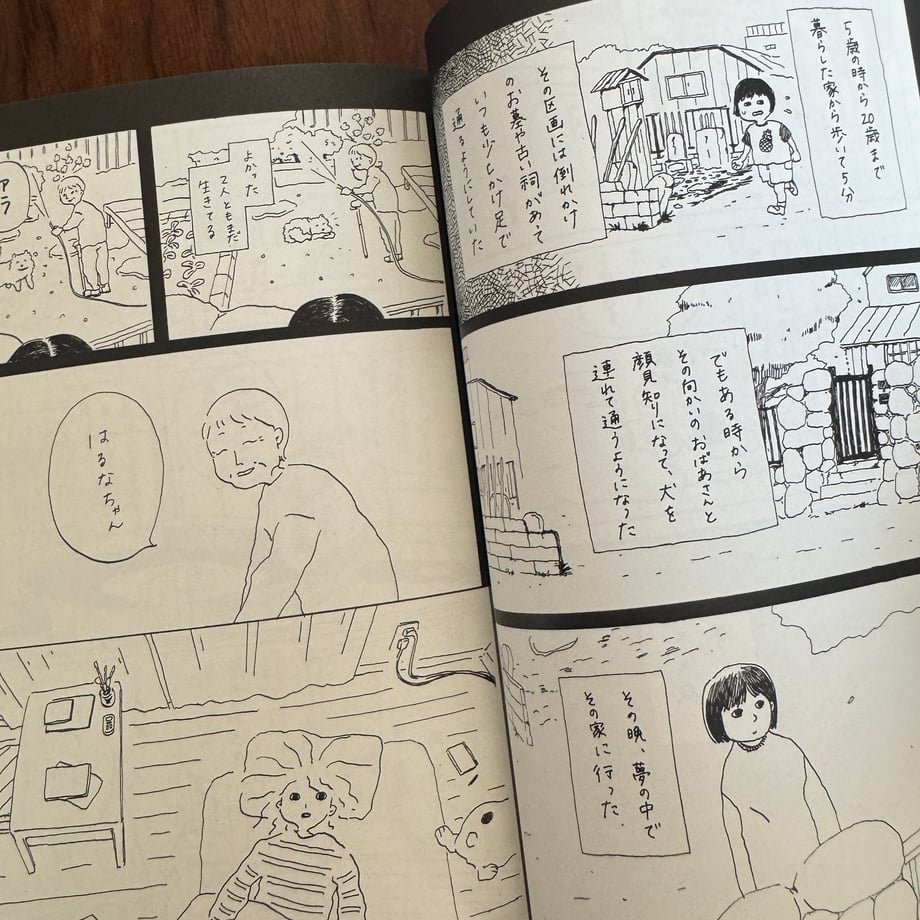 5歳の時から20歳まで
暮らした家から歩いて5分
その区画には倒れかけ
のお墓や古い祠があって
いつも少しかけ足で
通るようにしていた
でもある時から
その向かいのおばあさんと
顔見知りになって、犬を
連れて通うようになった
その晩、夢の中で
その家に行った
アラ
よかった
2人ともまだ
生きてる
はるなちゃん